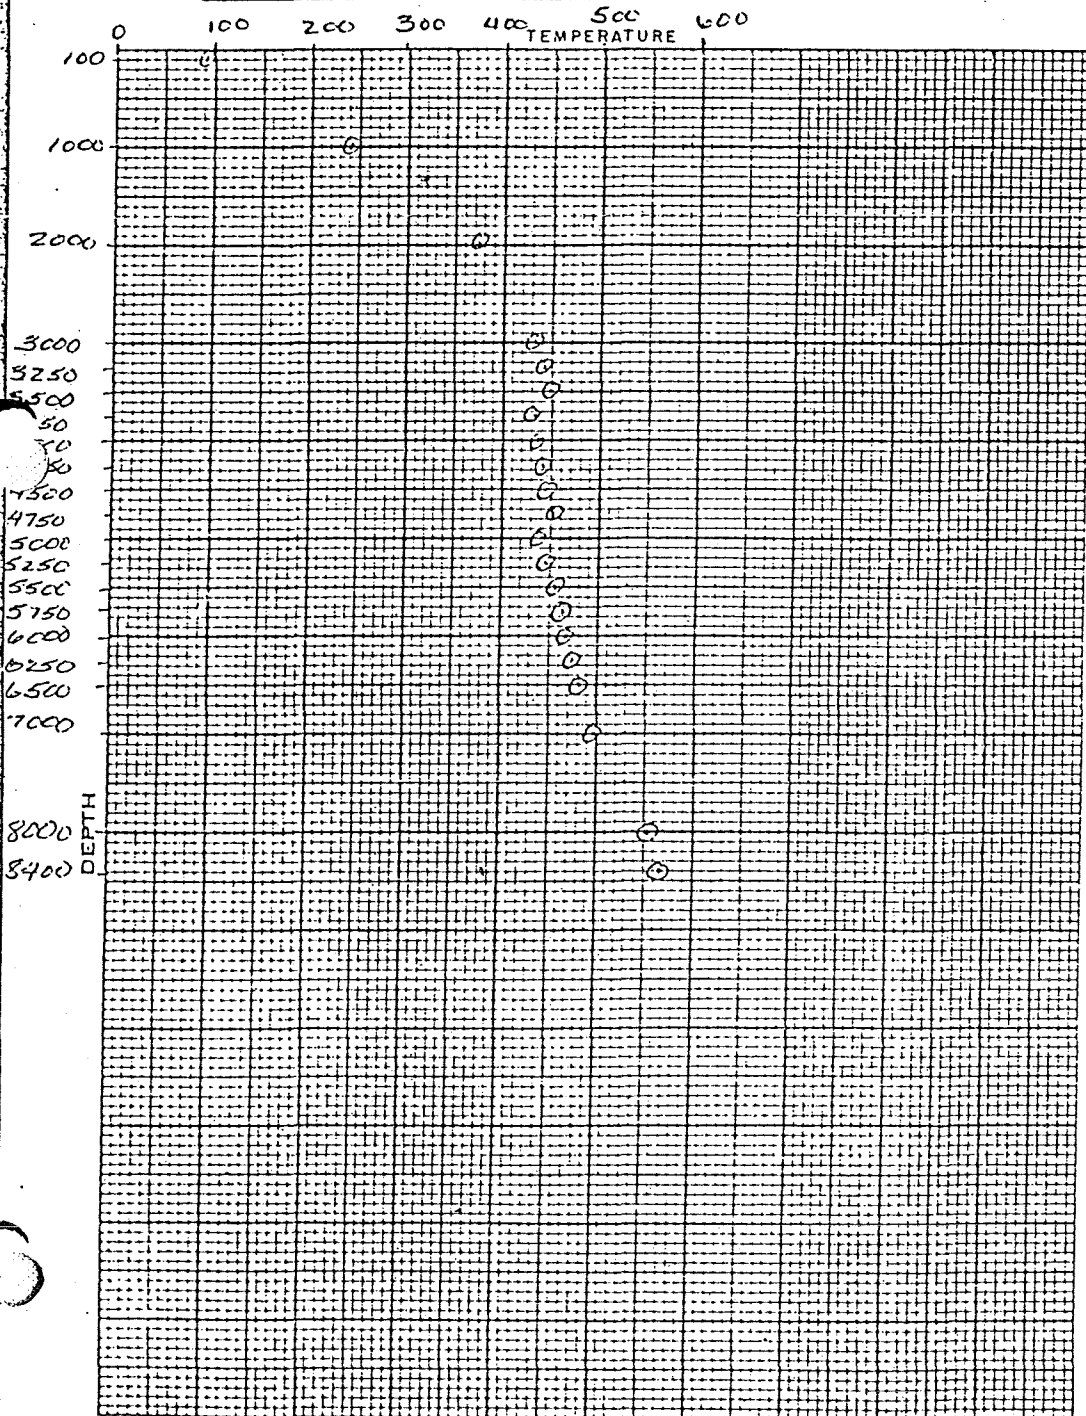 0 100 200 300 400 500 600
TEMPERATURE
100
1000
2000
3000
3250
3500
50
50
50
4500
4750
5000
5250
5500
5750
6000
6250
6500
7000
8000
8400
DEPTH